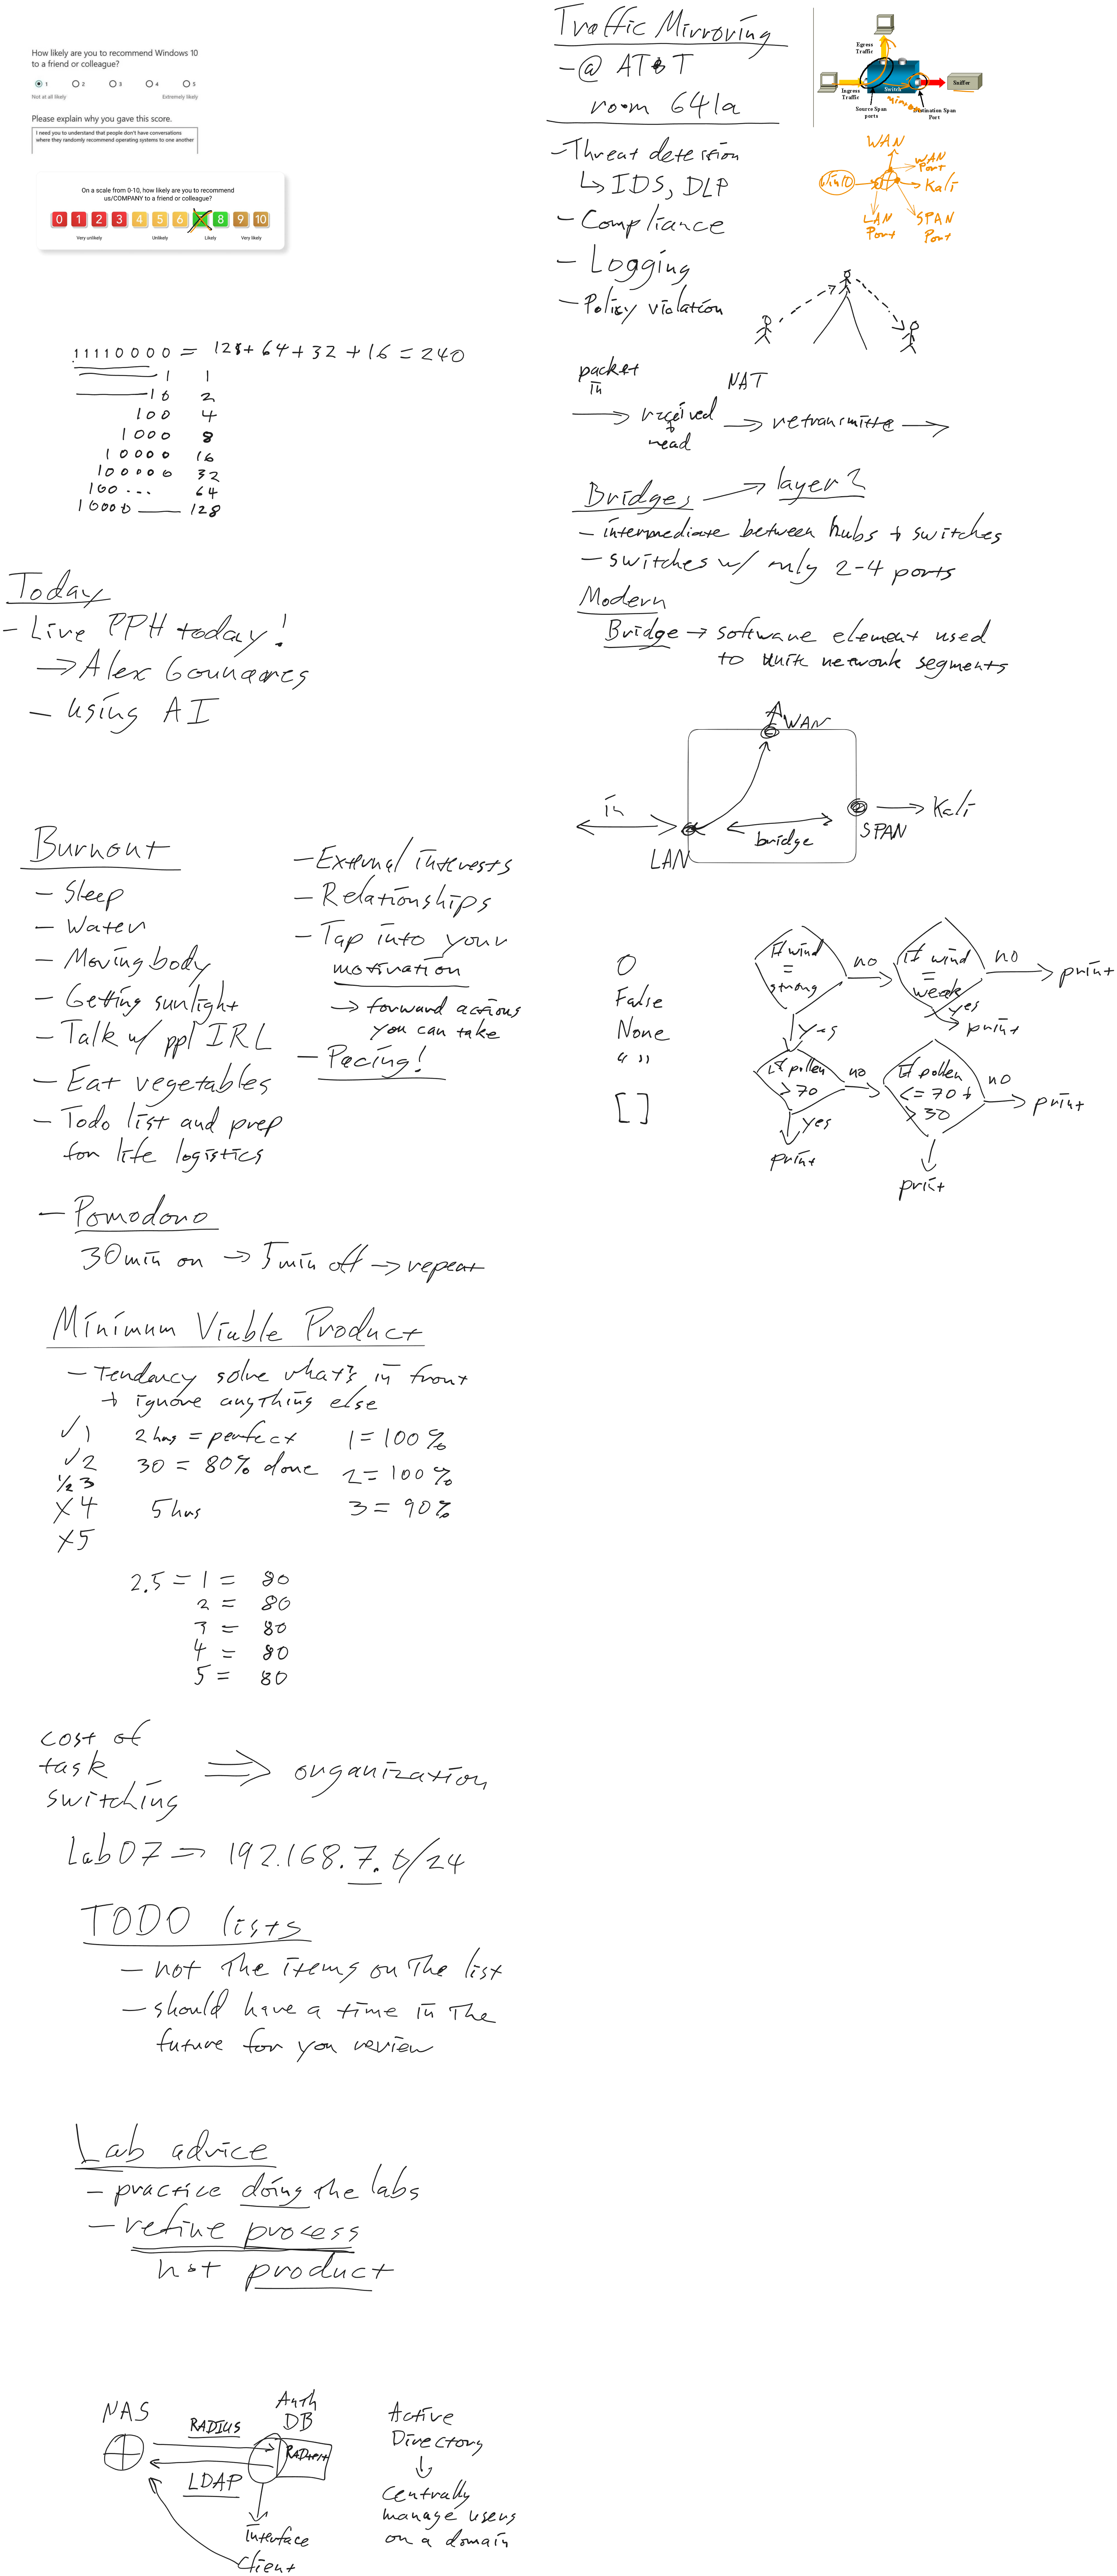 How likely are you to recommend Windows 10
to a friend or colleague?
1 2 3 4 5
Not at all likely Extremely likely
Please explain why you gave this score.
I need you to understand that people don't have conversations
where they randomly recommend operating systems to one another
On a scale from 0-10, how likely are you to recommend
us/COMPANY to a friend or colleague?
0 1 2 3 4 5 6 8 9 10
Very unlikely Unlikely Likely Very likely
11110000 = 128+64+32+16=240
1 1
10 2
100 4
1000 8
10000 16
100000 32
100... 64
10000 128
Today
- Live PPH today!
→ Alex Gounares
- using AI
Burnout
- Sleep
- Water
- Moving body
- Getting sunlight
- Talk w/ ppl IRL
- Eat vegetables
- Todo list and prep
for life logistics
- External interests
- Relationships
- Tap into your
motivation
→ forward actions
you can take
- Pacing!
- Pomodoro
30min on → 5min off → repeat
Minimum Viable Product
- Tendency solve what's in front
+ ignore anything else
✓1 2hrs = perfect 1=100%
✓2 30 = 80% done 2=100%
½ 3
X4 5hrs 3=90%
X5
2.5 = 1 = 80
2 = 80
3 = 80
4 = 80
5 = 80
cost of
task
switching
⇒ organization
Lab07 ⇒ 192.168.7.0/24
TODO lists
- not the items on the list
- should have a time in the
future for you review
Lab advice
- practice doing the labs
- refine process
not product
NAS
RADIUS
LDAP
Auth
DB
interface
client
Active
Directory
↓
Centrally
manage users
on a domain
Traffic Mirroring
-@ AT&T
room 641a
- Threat detection
↳ IDS, DLP
- Compliance
- Logging
- Policy violation
Egress
Traffic
Ingress
Traffic
Switch
Sniffer
Source Span
ports
mirror
Destination Span
Port
WAN
WAN
Port
Win10
Kali
LAN
Port
SPAN
Port
packet
in
NAT
→ received
+
read
→ retransmitte →
Bridges → layer 2
- intermediate between hubs + switches
- switches w/ only 2-4 ports
Modern
Bridge → software element used
to unite network segments
WAN
in
LAN
bridge
SPAN
→ Kali
0
False
None
" "
[]
If wind
=
strong
no
If wind
=
weak
no
→ print
yes
print
yes
If pollen
>70
no
If pollen
<=70 +
>30
no
→ print
yes
print
print